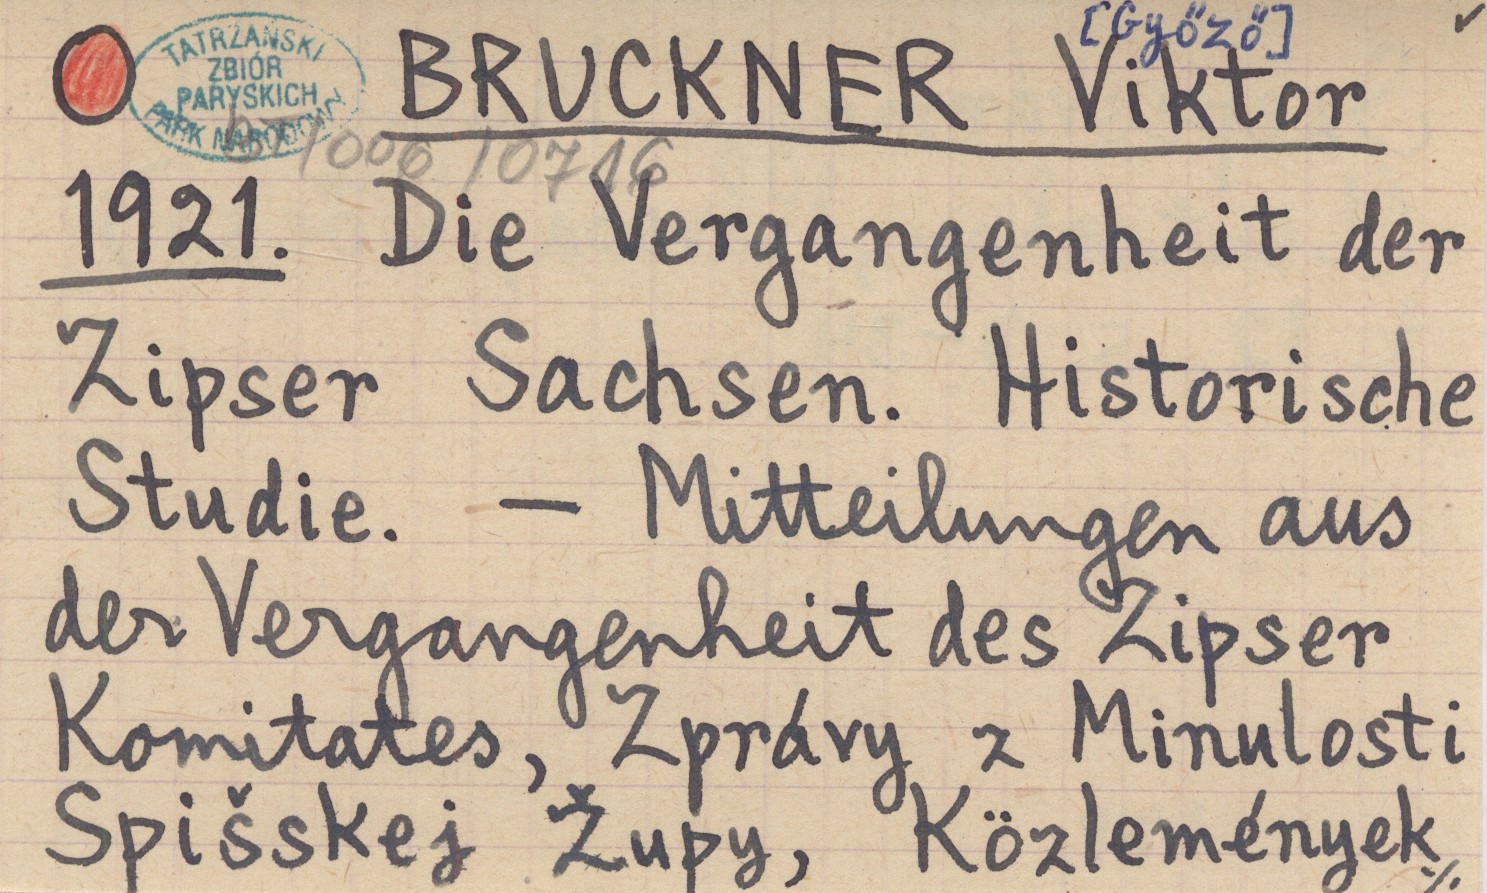 [Győző]
TATRZAŃSKI
ZBIÓR
PARYSKICH
PARK NARODOWY
BRUCKNER Viktor
b7/006/0716
1921. Die Vergangenheit der
Zipser Sachsen. Historische
Studie. — Mitteilungen aus
der Vergangenheit des Zipser
Komitates, Zprávy z Minulosti
Spišskej Župy, Közlemények
./.